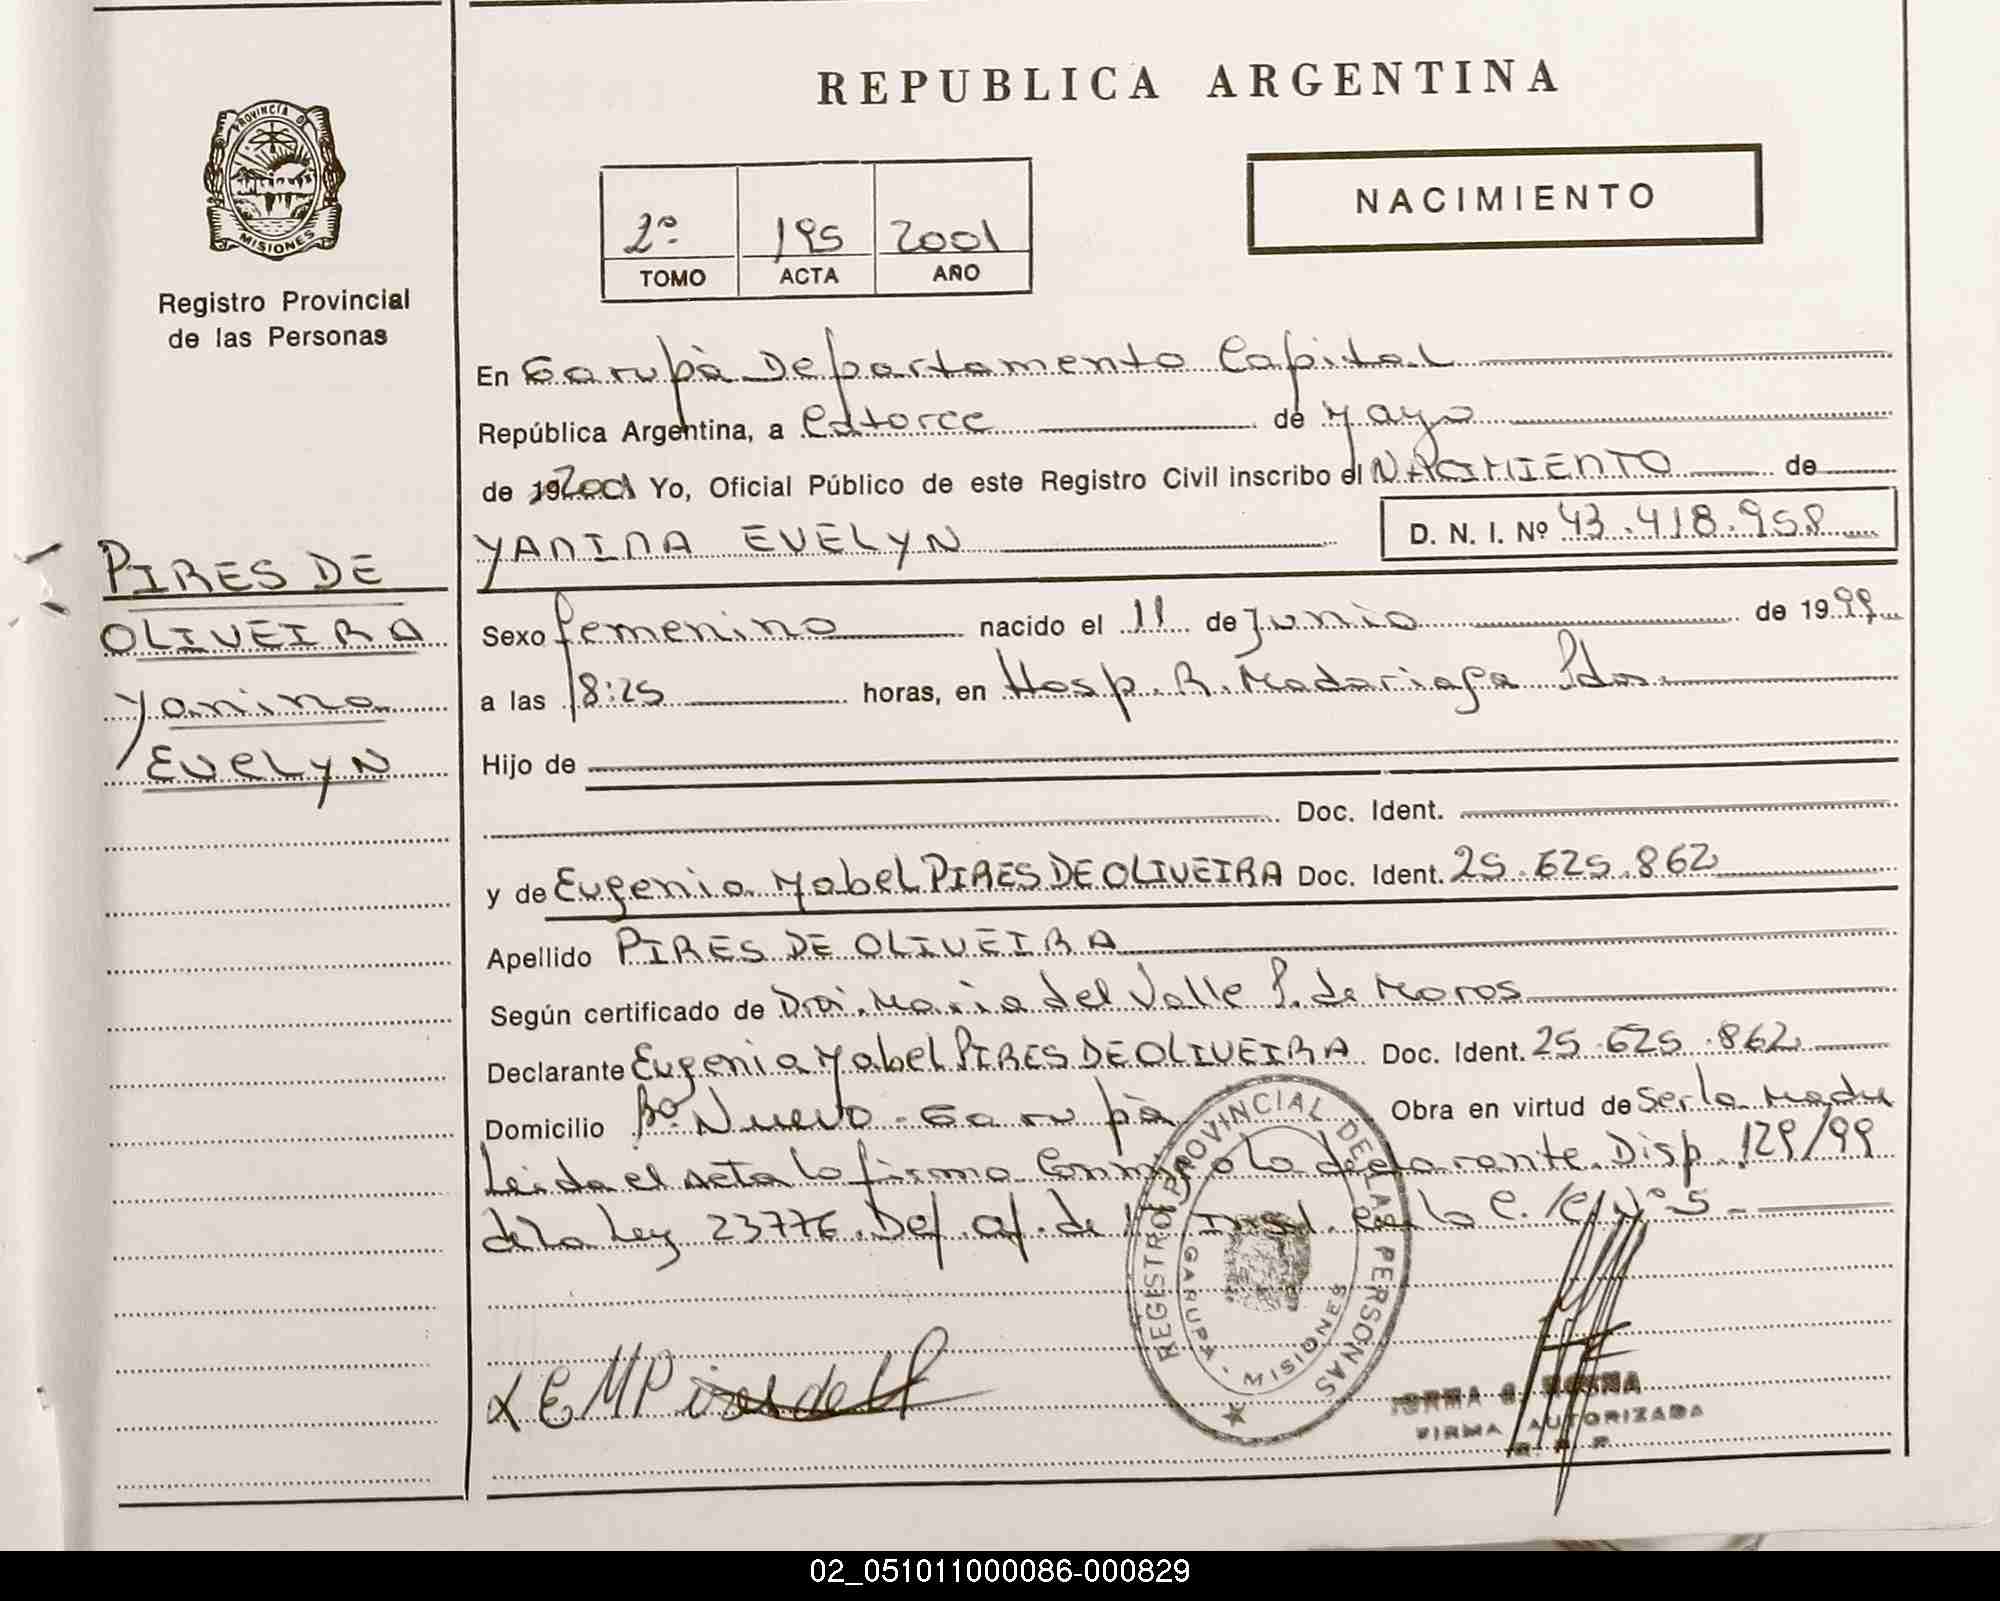 REPUBLICA ARGENTINA
PROVINCIA DE
MISIONES
Registro Provincial
de las Personas
NACIMIENTO
2º 195 2001
TOMO ACTA AÑO
En Garupà Departamento Capital
República Argentina, a Catorce de Mayo
de 192001 Yo, Oficial Público de este Registro Civil inscribo el NACIMIENTO de
YANINA EVELYN D. N. I. Nº 43.418.958
PIRES DE
OLIVEIRA
Yanina
EVELYN
Sexo femenino nacido el 11 de Junio de 1999
a las 18:25 horas, en Hosp. R. Madariaga Pdas.
Hijo de
Doc. Ident.
y de Eugenia Mabel PIRES DE OLIVEIRA Doc. Ident. 25.625.862
Apellido PIRES DE OLIVEIRA
Según certificado de Dra. Maria del Valle P. de Moros
Declarante Eugenia Mabel PIRES DE OLIVEIRA Doc. Ident. 25.625.862
Domicilio Bº Nuevo - Garupà Obra en virtud de Ser la Madre
Leida el acta lo firma Conmigo la declarante. Disp. 129/99
de la Ley 23776. Def. af. de la en la C. Nº 5
REGISTRO PROVINCIAL DE LAS PERSONAS
GARUPA - MISIONES
FIRMA AUTORIZADA
02_051011000086-000829